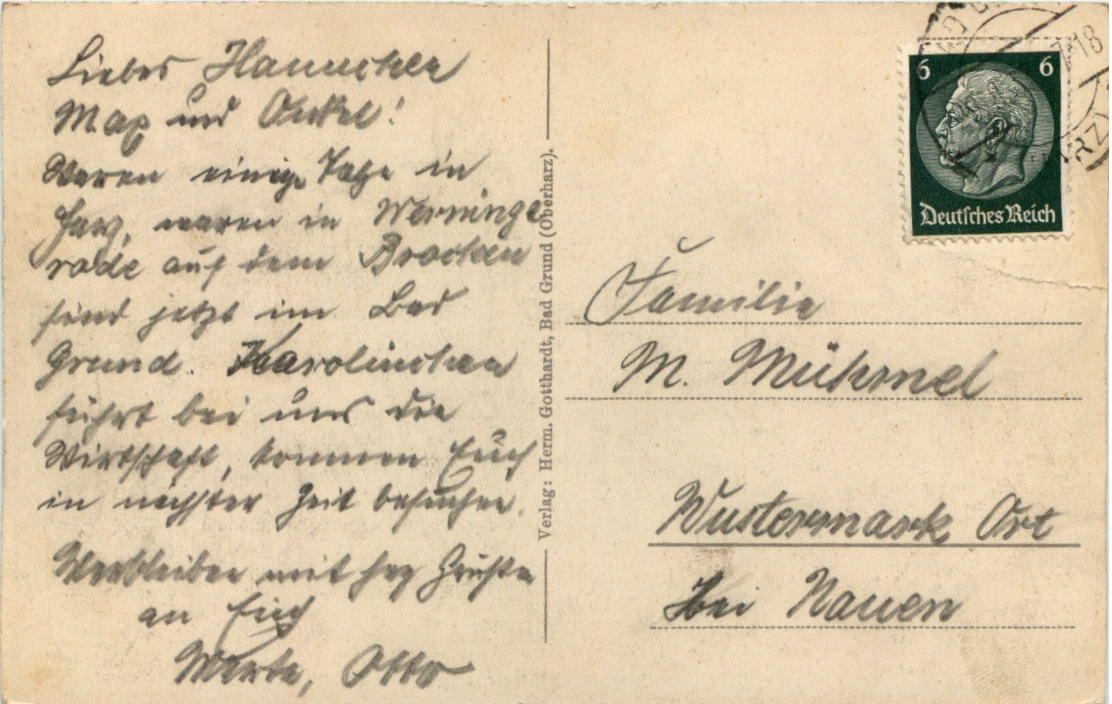 Liebes Hannchen
Max und Onkel!
Waren einige Tage in
Harz, waren in Werninge
rode auf dem Brocken
sind jetzt im Bad
Grund. Karolinchen
führt bei uns die
Wirtschaft, kommen Euch
in nächster Zeit besuchen.
Verbleiben mit herz Grüßen
an Euch
Otto
Verlag: Herm. Gotthardt, Bad Grund (Oberharz).
6 6
Deutsches Reich
18
RZ)
Familie
M. Mühmel
Wustermark Ort
bei Nauen